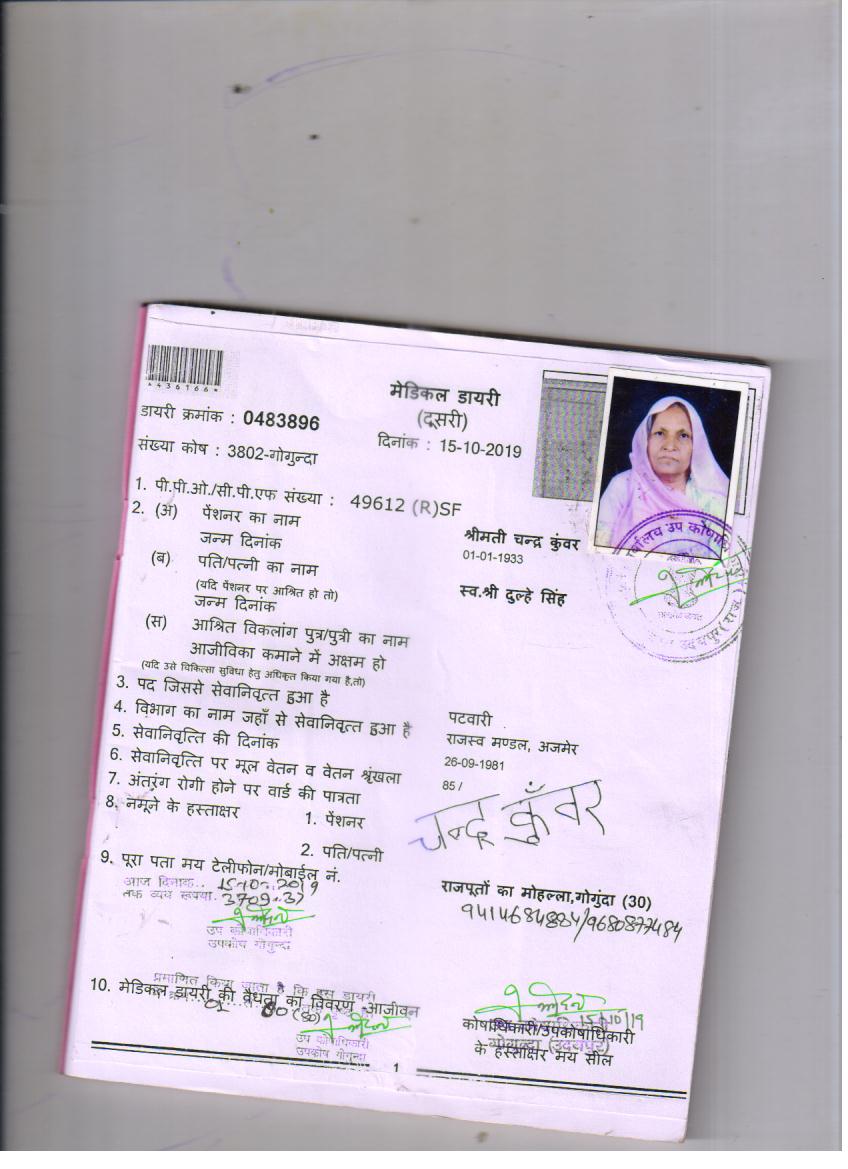 *436166*
मेडिकल डायरी
(दूसरी)
डायरी क्रमांक : 0483896
दिनांक : 15-10-2019
संख्या कोष : 3802-गोगुन्दा
1. पी.पी.ओ./सी.पी.एफ संख्या : 49612 (R)SF
2. (अ) पेंशनर का नाम श्रीमती चन्द्र कुंवर
जन्म दिनांक 01-01-1933
(ब) पति/पत्नी का नाम स्व.श्री दुल्हे सिंह
(यदि पेंशनर पर आश्रित हो तो)
जन्म दिनांक
(स) आश्रित विकलांग पुत्र/पुत्री का नाम
आजीविका कमाने में अक्षम हो
(यदि उसे चिकित्सा सुविधा हेतु अधिकृत किया गया है,तो)
3. पद जिससे सेवानिवृत्त हुआ है पटवारी
4. विभाग का नाम जहाँ से सेवानिवृत्त हुआ है राजस्व मण्डल, अजमेर
5. सेवानिवृत्ति की दिनांक 26-09-1981
6. सेवानिवृत्ति पर मूल वेतन व वेतन श्रृंखला 85 /
7. अंतरंग रोगी होने पर वार्ड की पात्रता
8. नमूने के हस्ताक्षर 1. पेंशनर चन्द्र कुँवर
2. पति/पत्नी
9. पूरा पता मय टेलीफोन/मोबाईल नं. राजपूतों का मोहल्ला,गोगुंदा (30)
/9680877484
आज दिनांक.. 15-10-2019
तक व्यय रूपया. 3709.37
उप कोषाधिकारी
उपकोष गोगुन्दा
प्रमाणित किया जाता है कि इस डायरी
10. मेडिकल डायरी की वैधता का विवरण -आजीवन
80 (80)
उप कोषाधिकारी
उपकोष गोगुन्दा
15/10/19
कोषाधिकारी/उपकोषाधिकारी
गोगुन्दा (उदयपुर)
के हस्ताक्षर मय सील
1